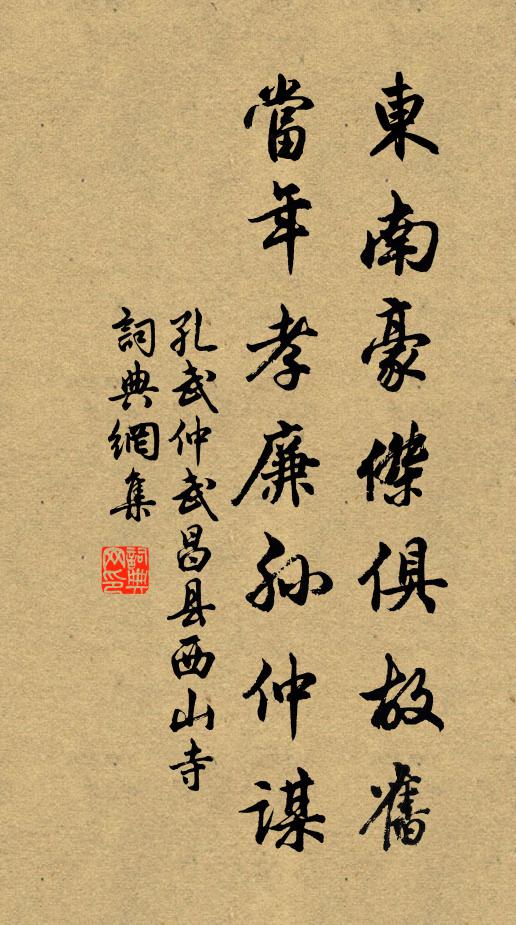 東南豪傑俱故舊
當年孝廉孫仲謀
孔武仲武昌县西山寺
詞典網集
詞典网印